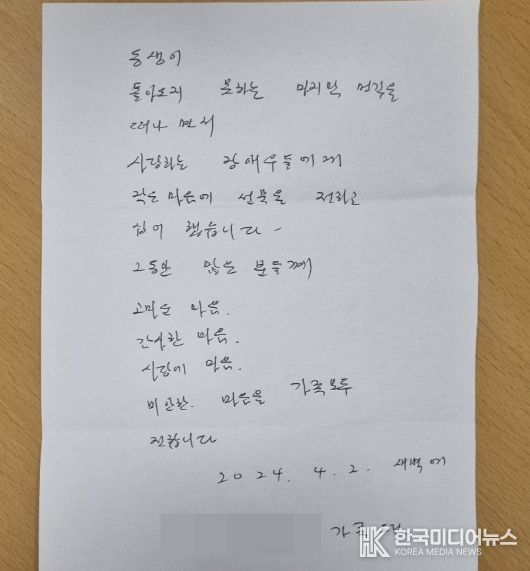 동생이
돌아오지 못하는 마지막 먼길을
떠나면서
사랑하는 장애우들에게
작은 마음에 선물을 전하고
싶어 했습니다 -
그동안 많은 분들께
고마운 마음.
감사한 마음.
사랑에 마음.
미안한. 마음을 가족모두
전합니다
2024. 4. 2. 새벽에
가족
한국미디어뉴스
KOREA MEDIA NEWS